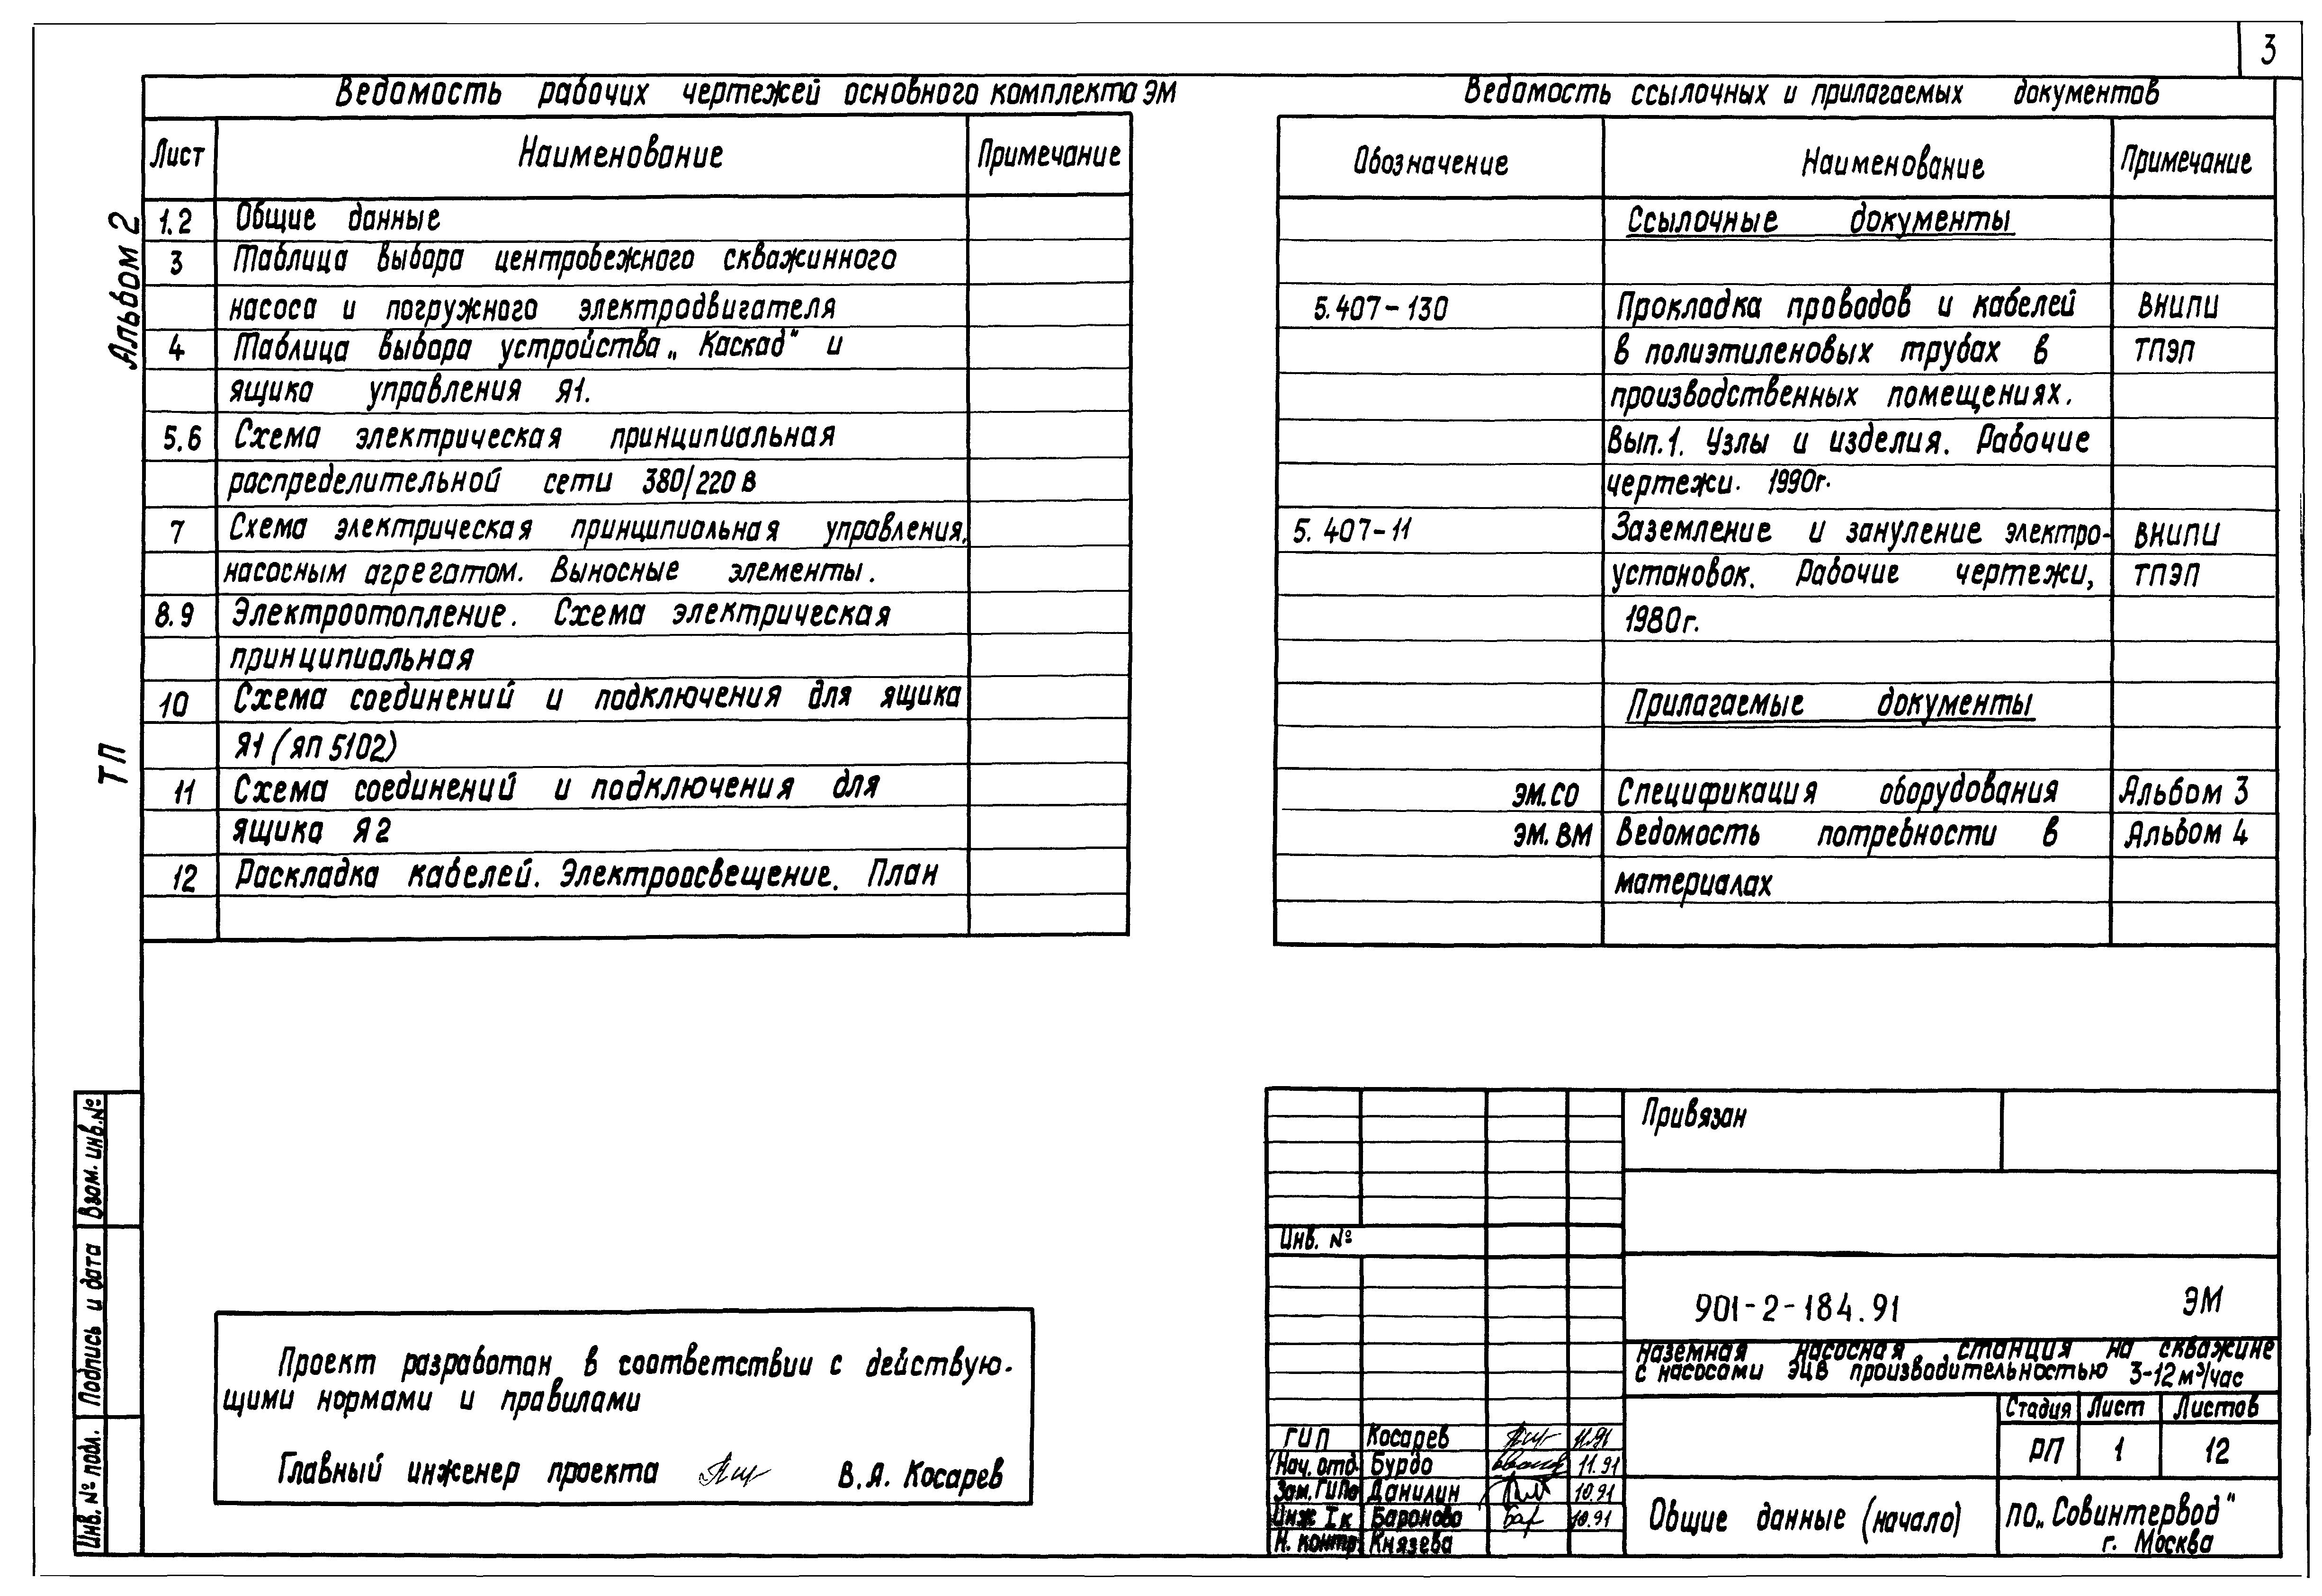 3
Ведомость рабочих чертежей основного комплекта ЭМ
Лист Наименование Примечание
1.2 Общие данные
3 Таблица выбора центробежного скважинного
насоса и погружного электродвигателя
4 Таблица выбора устройства „Каскад" и
ящика управления Я1.
5.6 Схема электрическая принципиальная
распределительной сети 380/220 в
7 Схема электрическая принципиальная управления,
насосным агрегатом. Выносные элементы.
8.9 Электроотопление. Схема электрическая
принципиальная
10 Схема соединений и подключения для ящика
Я1 (ЯП 5102)
11 Схема соединений и подключения для
ящика Я2
12 Раскладка кабелей. Электроосвещение. План
Ведомость ссылочных и прилагаемых документов
Обозначение Наименование Примечание
Ссылочные документы
5.407-130 Прокладка проводов и кабелей ВНИПИ
в полиэтиленовых трубах в ТПЭП
производственных помещениях.
Вып.1. Узлы и изделия. Рабочие
чертежи. 1990г.
5.407-11 Заземление и зануление электро- ВНИПИ
установок. Рабочие чертежи, ТПЭП
1980г.
Прилагаемые документы
ЭМ.СО Спецификация оборудования Альбом 3
ЭМ.ВМ Ведомость потребности в Альбом 4
материалах
Альбом 2
ТП
Взам. инв.№
Подпись и дата
Инв. № подл.
Проект разработан в соответствии с действую-
щими нормами и правилами
Главный инженер проекта В.Я. Косарев
Привязан
Инв. №
901-2-184.91 ЭМ
Наземная насосная станция на скважине
с насосами ЭЦВ производительностью 3-12 м³/час
Стадия Лист Листов
РП 1 12
ГИП Косарев 11.91
Нач. отд. Бурдо 11.91
Зам. ГИПа Данилин 10.91
Инж I к Баронова 10.91
Н. контр Князева
Общие данные (начало)
ПО „Совинтервод"
г. Москва